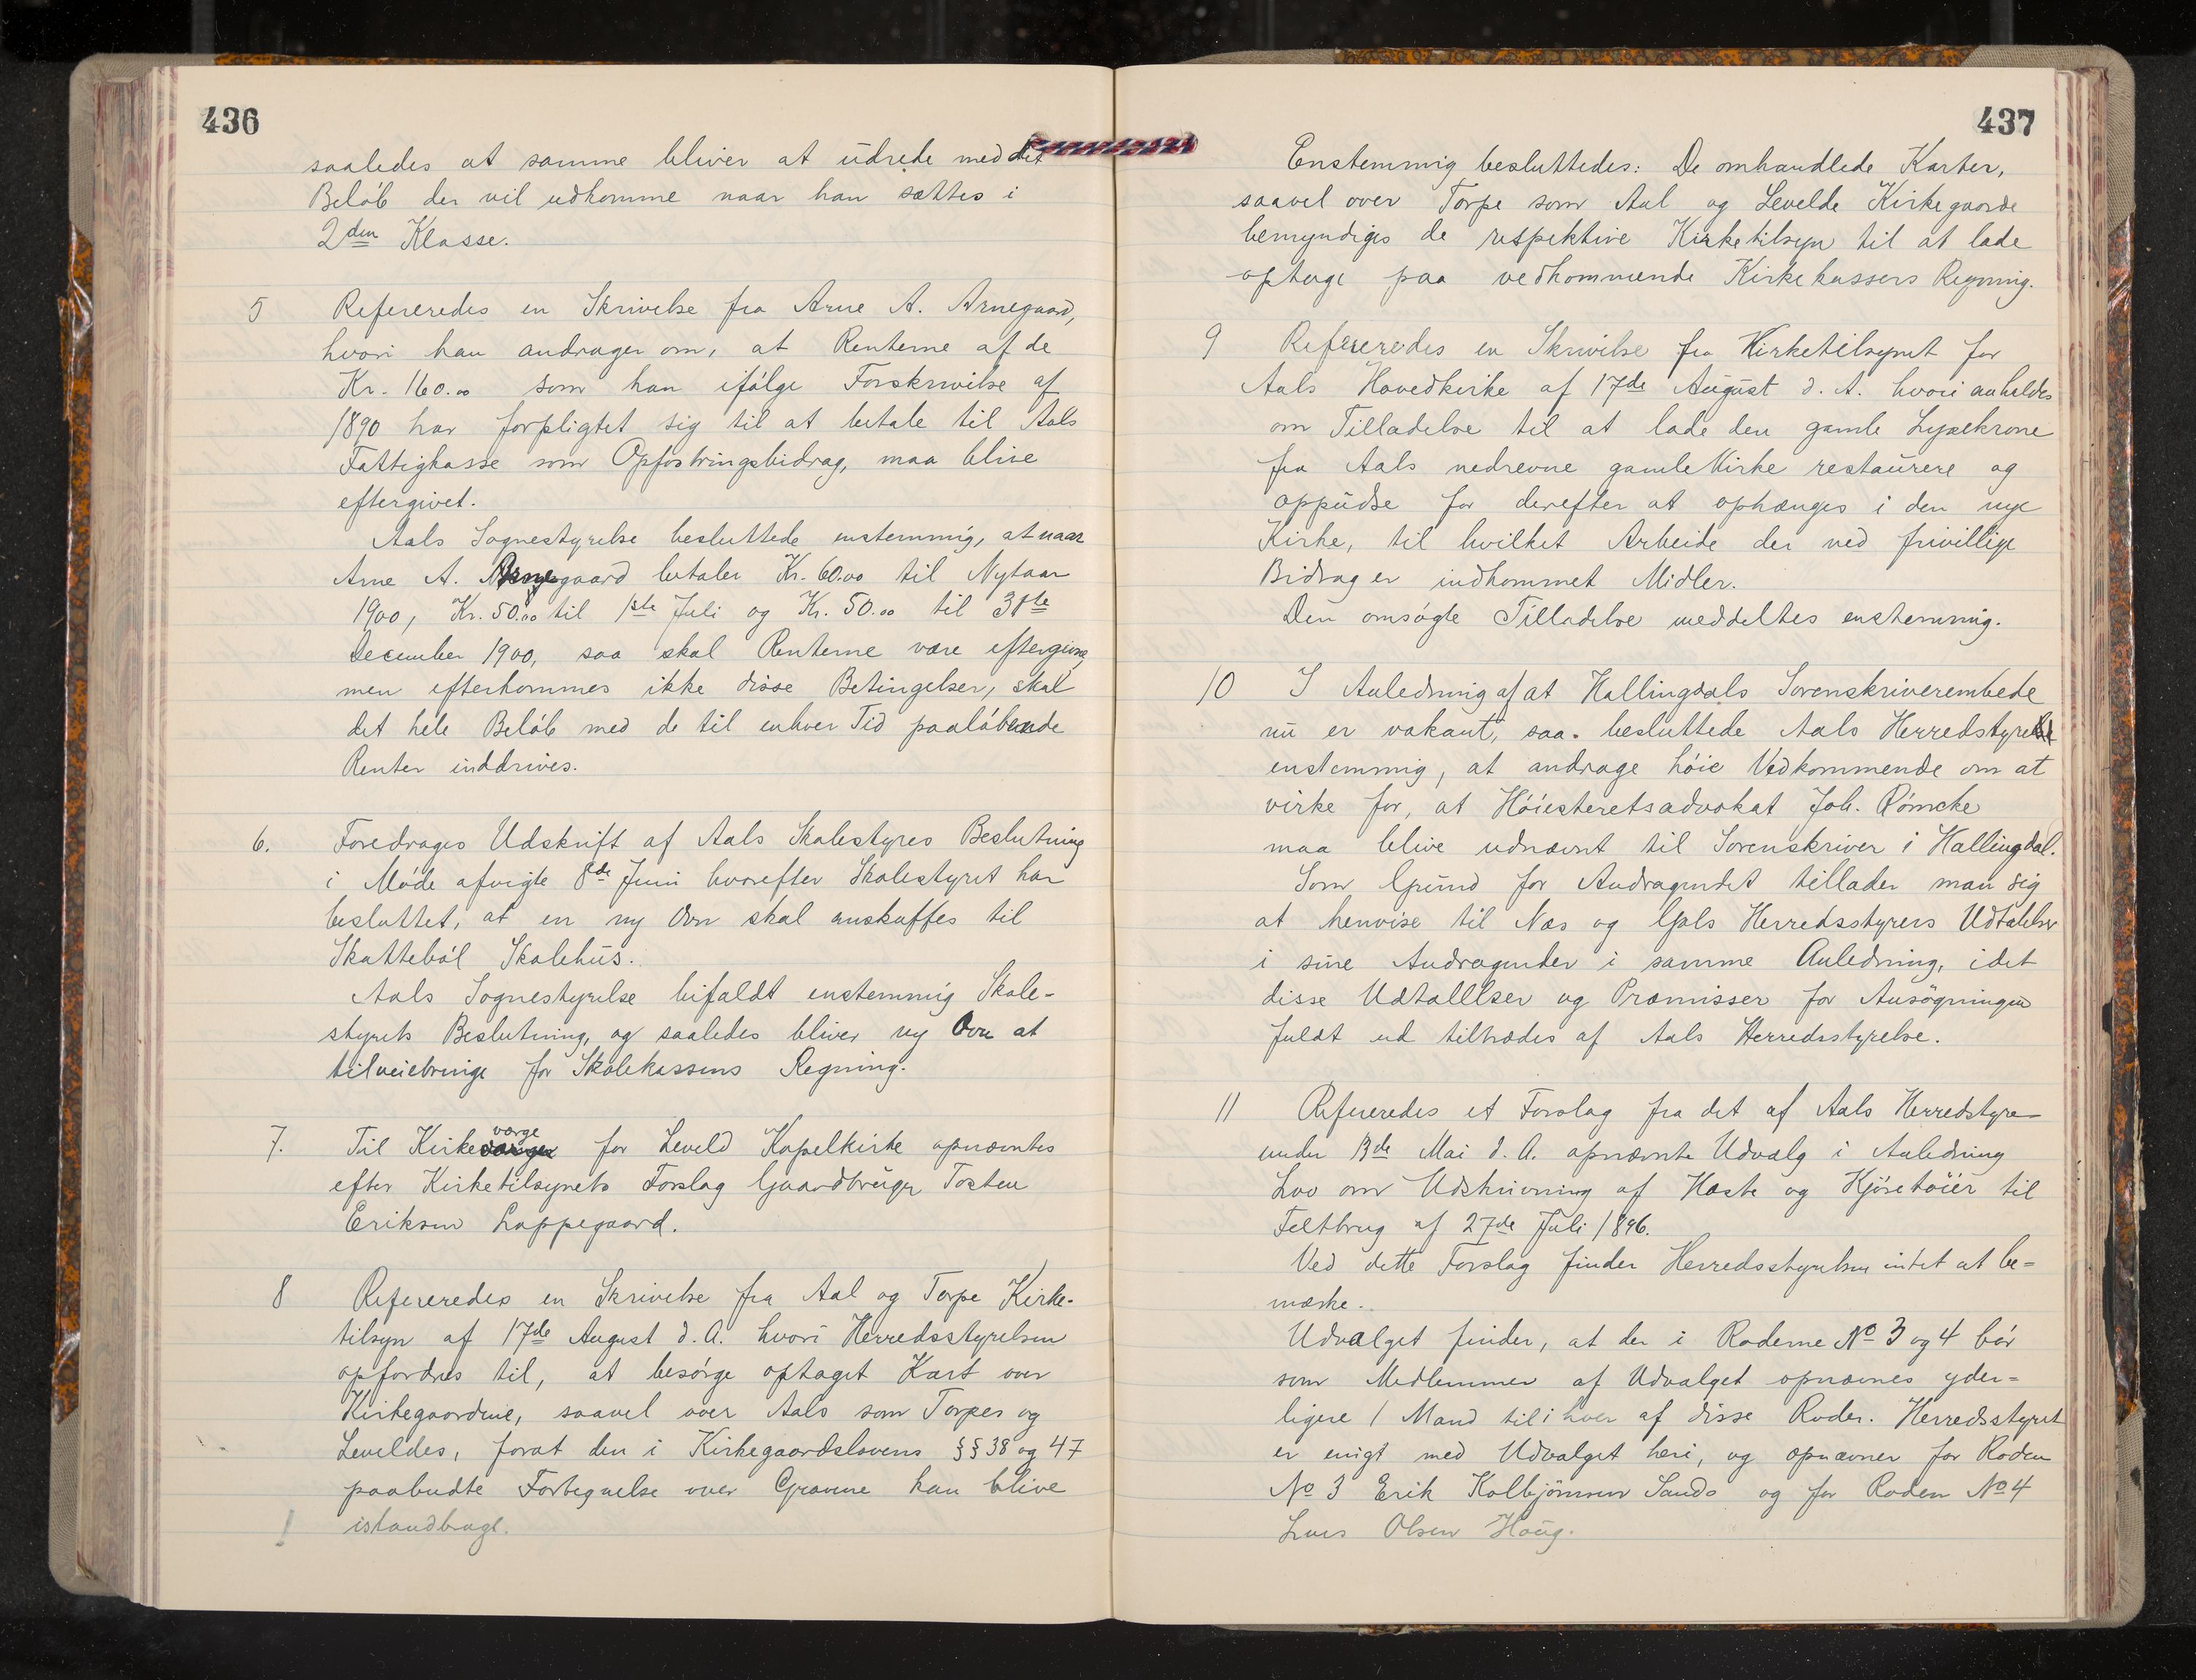 436
saaledes at samme bliver at udrede med det
Beløb der vil udkomme naar han sættes i
2den Klasse.
5 Refereredes en Skrivelse fra Arne A. Arnegaard,
hvori han andrager om, at Renterne af de
Kr. 160.00 som han ifølge Forskrivelse af
1890 har forpligtet sig til at betale til Aals
Fattigkasse som Opfostringsbidrag, maa blive
eftergivet.
Aals Sognestyrelse besluttede enstemmig, at naar
Arne A. Arnegaard betaler Kr. 60.00 til Nytaar
1900, Kr. 50.00 til 1ste Juli og Kr. 50.00 til 31te
December 1900, saa skal Renterne være eftergivne,
men efterkommes ikke disse Betingelser, skal
det hele Beløb med de til enhver Tid paaløbende
Renter inddrives.
6. Foredroges Udskrift af Aals Skolestyres Beslutning
i Møde afvigte 8de Juni hvorefter Skolestyret har
besluttet, at en ny Ovn skal anskaffes til
Skattebøl Skolehus.
Aals Sognestyrelse bifaldt enstemmig Skole-
styrets Beslutning, og saaledes bliver ny Ovn at
tilveiebringe for Skolekassens Regning.
7. Til Kirkeværge for Leveld Kapelkirke opnævntes
efter Kirketilsynets Forslag Gaardbruger Tosten
Eriksen Lappegaard.
8 Refereredes en Skrivelse fra Aal og Torpe Kirke-
tilsyn af 17de August d. A. hvori Herredsstyrelsen
opfordres til, at besørge optaget Kart over
Kirkegaardene, saavel over Aals som Torpes og
Leveldes, forat den i Kirkegaardslovens §§ 38 og 47
paabudte Fortegnelse over Gravene kan blive
istandbragt.
437
Enstemmig besluttedes: De omhandlede Karter,
saavel over Torpe som Aal og Levelde Kirkegaarde
bemyndiges de respektive Kirketilsyn til at lade
optage paa vedkommende Kirkekassers Regning.
9 Refereredes en Skrivelse fra Kirketilsynet for
Aals Hovedkirke af 17de August d. A. hvori anholdes
om Tilladelse til at lade den gamle Lysekrone
fra Aals nedrevne gamle Kirke restaurere og
oppudse for derefter at ophænges i den nye
Kirke, til hvilket Arbeide der ved frivillige
Bidrag er indkommet Midler.
Den omsøgte Tilladelse meddeltes enstemmig.
10 I Anledning af at Hallingdals Sorenskriverembede
nu er vakant, saa besluttede Aals Herredstyrelse
enstemmig, at andrage høie Vedkommende om at
virke for, at Høiesteretsadvokat Joh. Rømcke
maa blive udnævnt til Sorenskriver i Hallingdal.
Som Grund for Andragendet tillader man sig
at henvise til Næs og Gols Herredsstyrers Udtalelser
i sine Andragender i samme Anledning, idet
disse Udtallser og Præmisser for Ansøgningen
fuldt ud tiltrædes af Aals Herredsstyrelse.
11 Refereredes et Forslag fra det af Aals Herredstyre
under 13de Mai d. A. opnævnte Udvalg i Anledning
Lov om Udskrivning af Heste og Kjøretøier til
Feltbrug af 27de Juli 1896.
Ved dette Forslag finder Herredsstyrelsen intet at be=
mærke.
Udvalget finder, at der i Roderne No 3 og 4 bør
som Medlemmer af Udvalget opnævnes yder=
ligere 1 Mand til i hver af disse Roder. Herredsstyret
er enigt med Udvalget heri, og opnævner for Roden
No 3 Erik Kolbjørnsen Sando og for Roden No 4
Lars Olsen Haug.